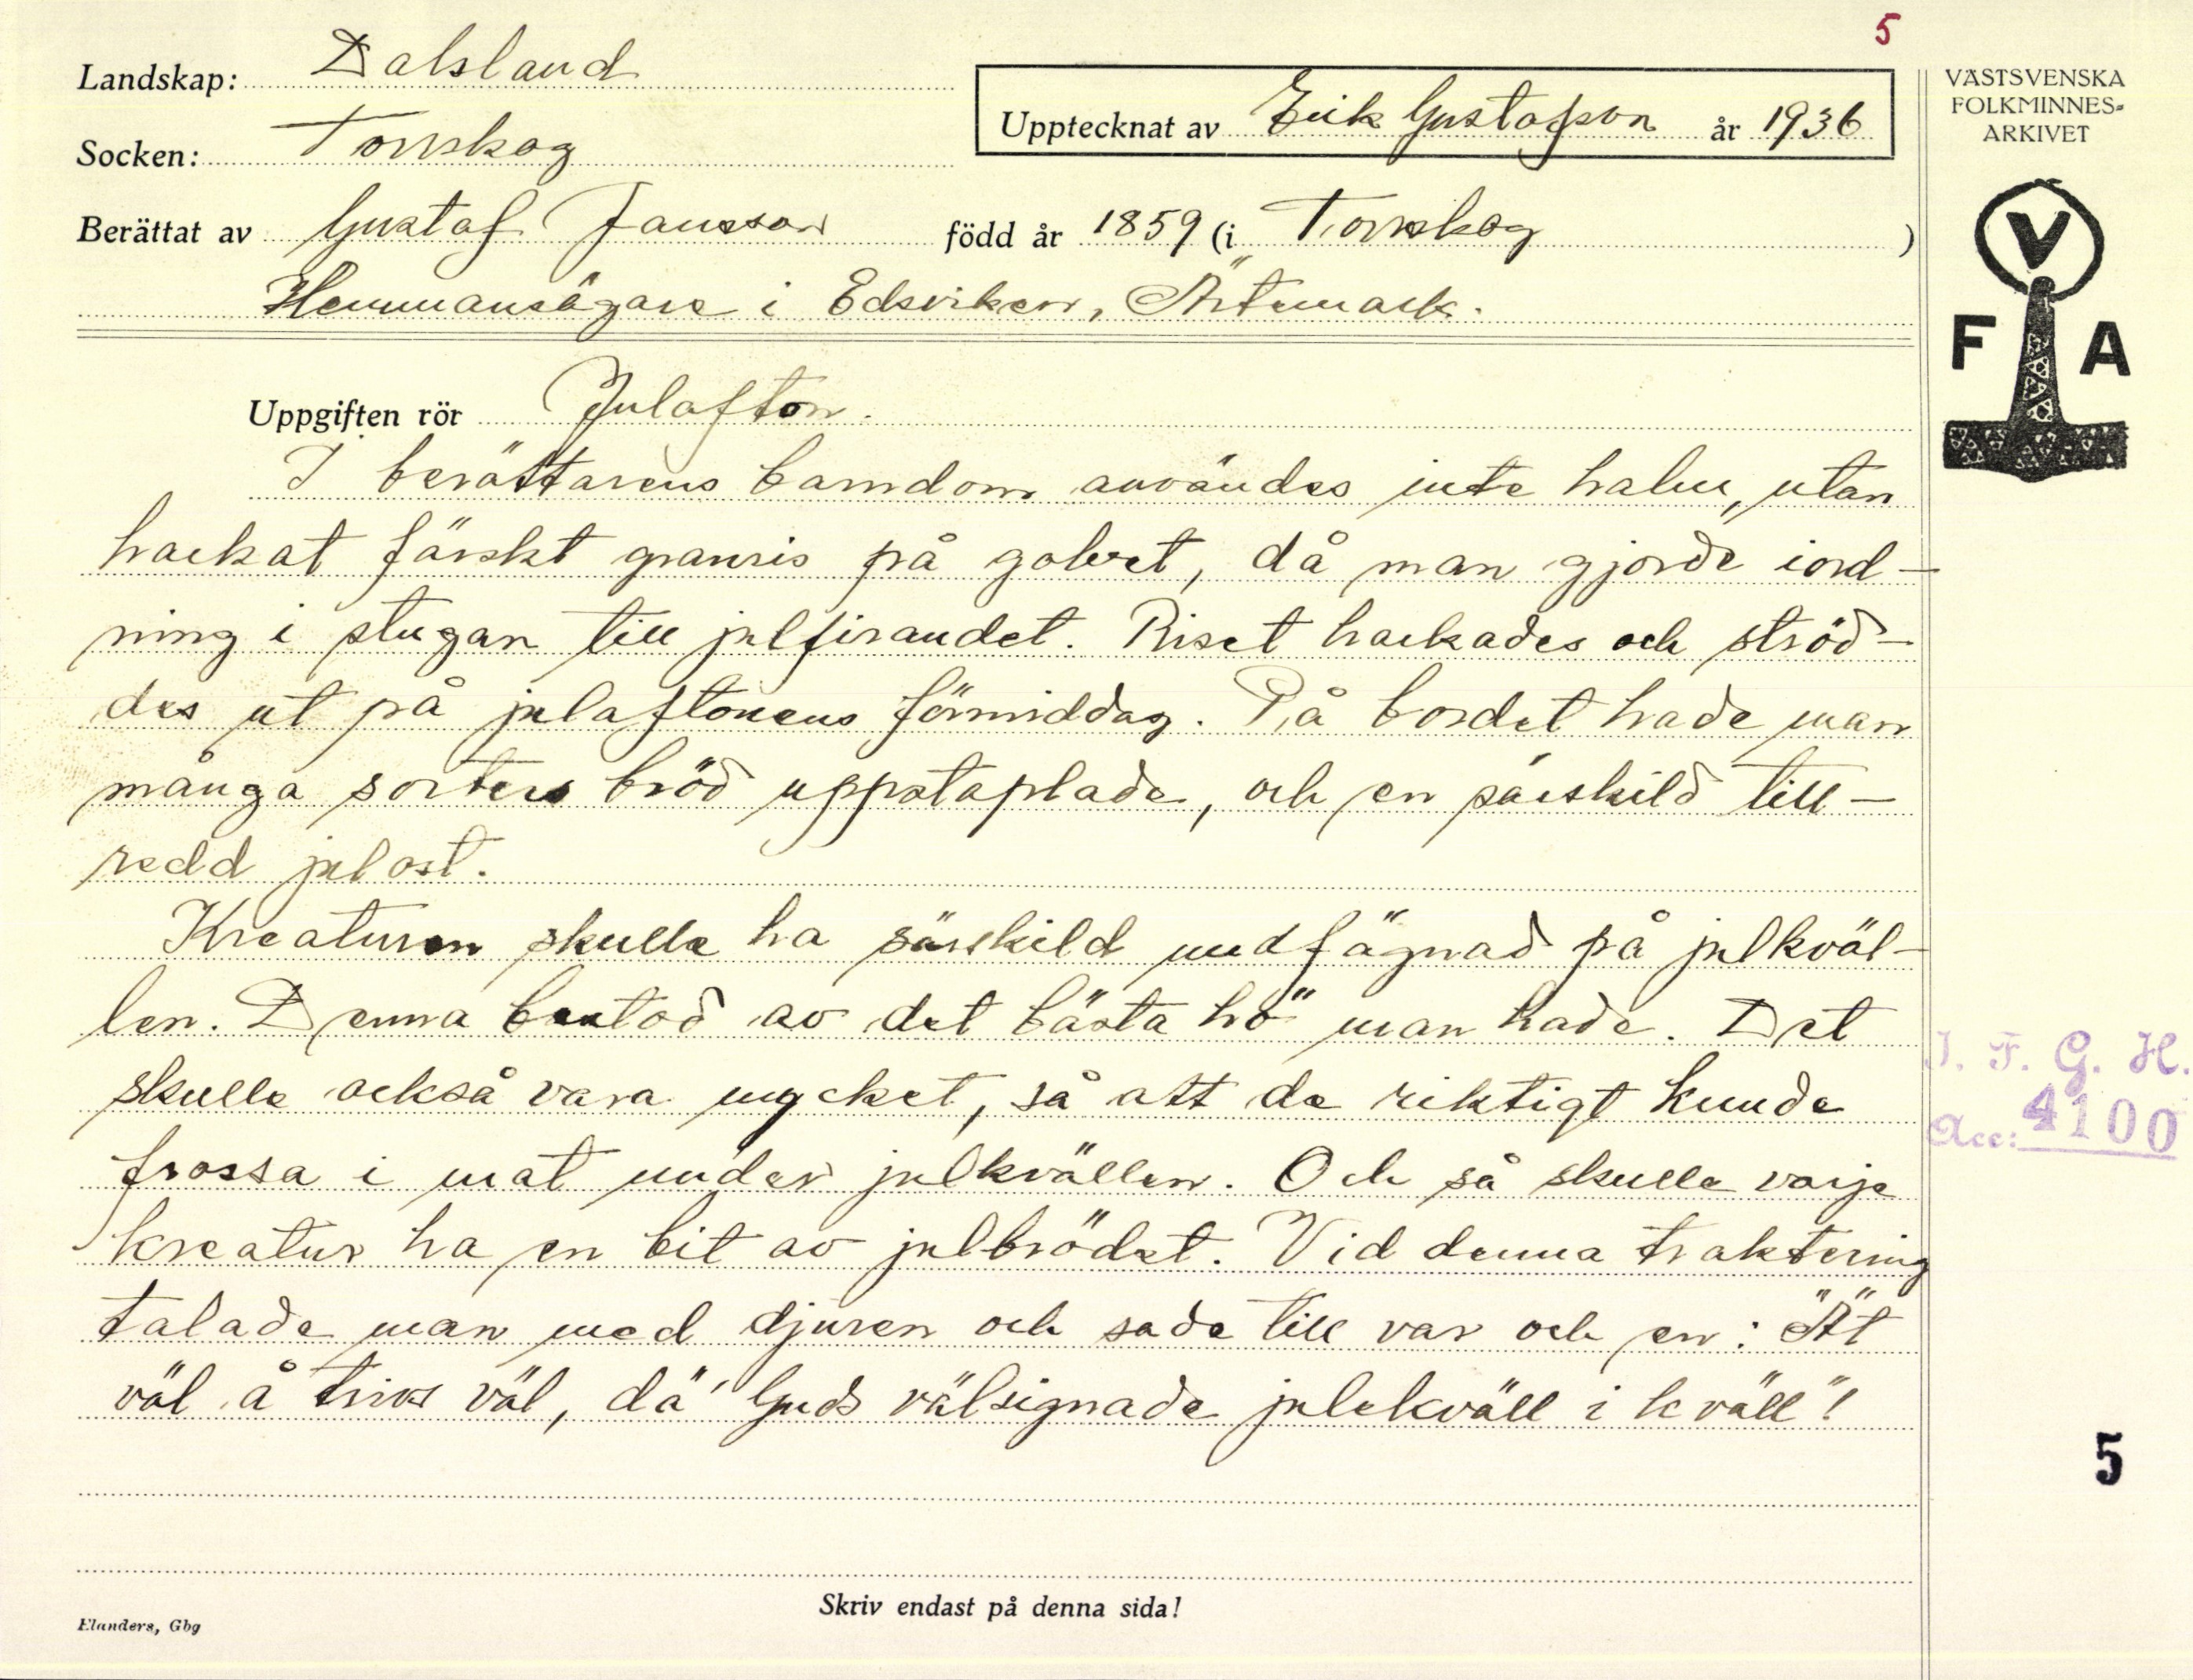 5
Landskap: Dalsland
Socken: Torrskog
Upptecknat av Erik Gustafson år 1936
Berättat av Gustaf Jansson född år 1859 (i Torrskog )
Hemmansägare i Edsviken, Ärtemark.
VÄSTSVENSKA
FOLKMINNES-
ARKIVET
V
F A
Uppgiften rör Julafton.
I berättarens barndom användes inte halm, utan
hackat färskt granris på golvet, då man gjorde iord-
ning i stugan till julfirandet. Riset hackades och ströd-
des ut på julaftonens förmiddag. På bordet hade man
många sorters bröd uppstaplade, och en särskild till-
redd julost.
Kreaturen skulle ha särskild undfägnad på julkväl-
len. Denna bestod av det bästa hö man hade. Det
skulle också vara mycket, så att de riktigt kunde
frossa i mat under julkvällen. Och så skulle varje
kreatur ha en bit av julbrödet. Vid denna traktering
talade man med djuren och sade till var och en: "Ät
väl å trivs väl, dä' Guds välsignade julekväll i kväll"!
I. F. G. H.
Acc: 4100
5
Skriv endast på denna sida!
Elanders, Gbg